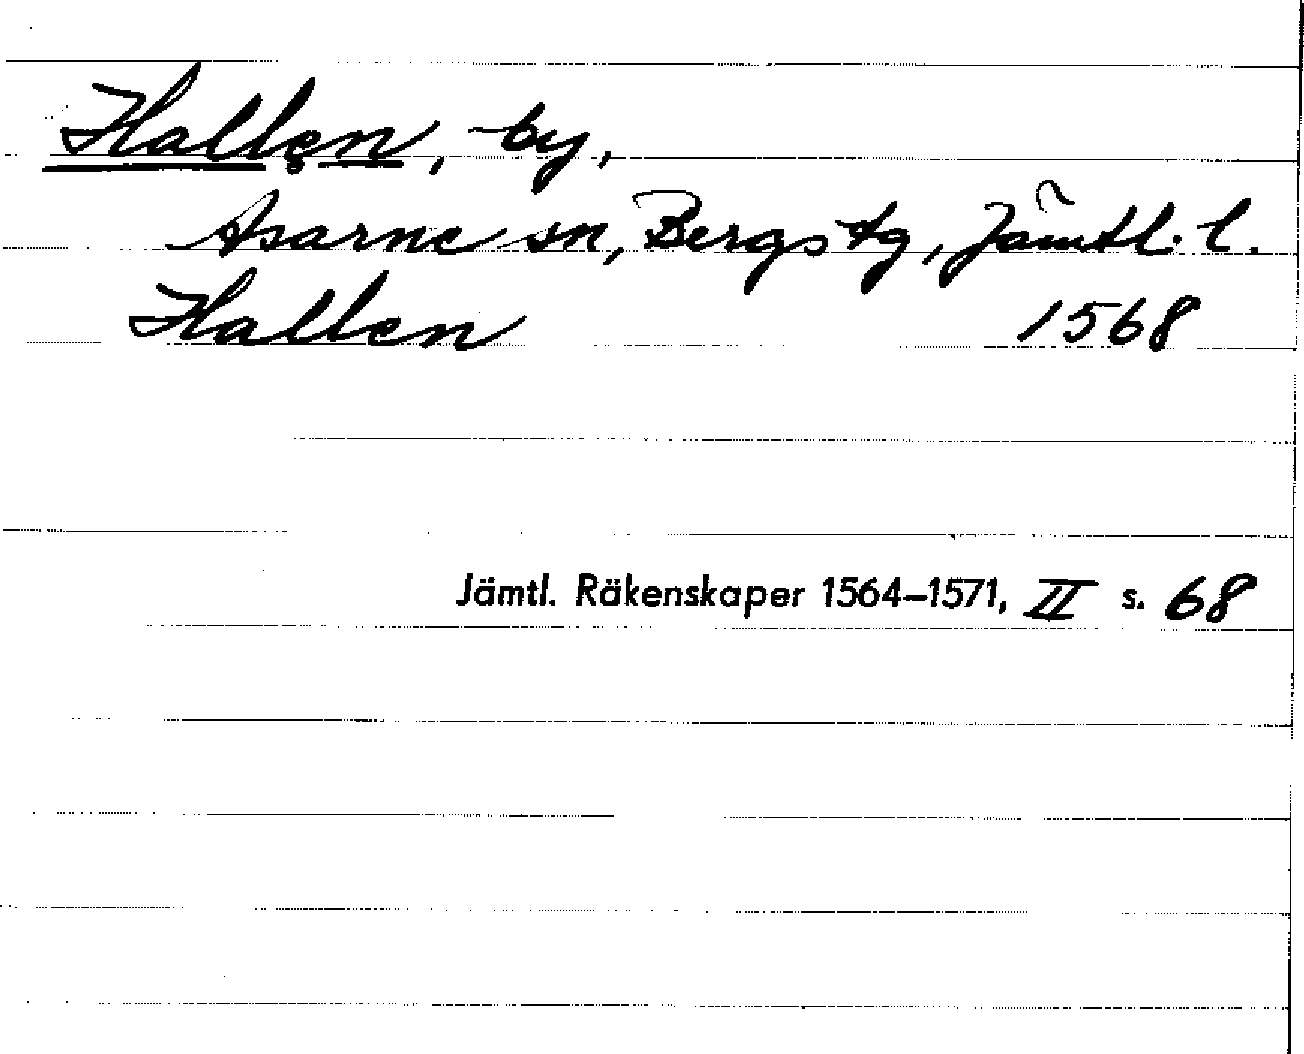 Hallen, by,
Åsarne sn, Bergs tg, Jämtl. l.
Hallen 1568
Jämtl. Räkenskaper 1564–1571, II s. 68